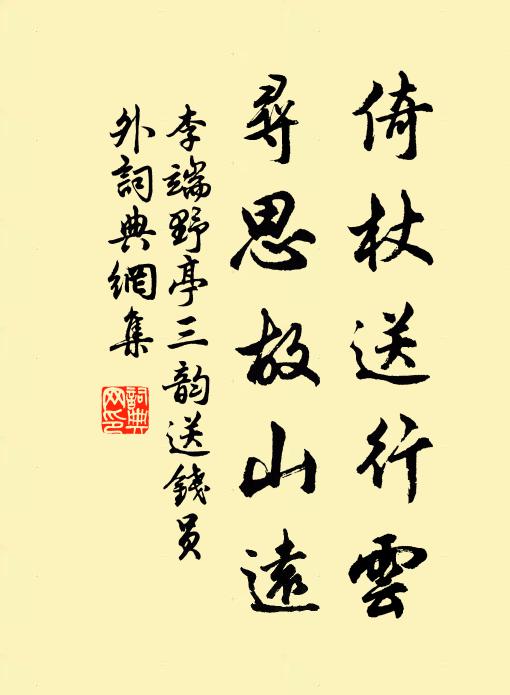 倚杖送行雲
尋思故山遠
李端野亭三韵送錢員
外詞典網集
詞典
网印